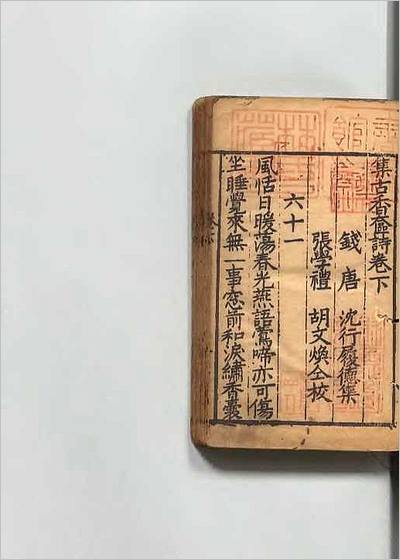 集古香奩詩卷下
錢唐 沈行履德集
張學禮 胡文煥仝校
六十一
風恬日暖蕩春光燕語鶯啼亦可傷
坐睡覺來無一事窓前和淚繡香囊